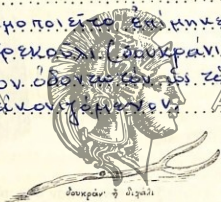 μοποιεῖτο ἐπίμηκε
ρεκούλι (δουκράνι
ον ὀδοντωτὸν ὡς τὸ
άκοντζόμενον.
δουκράν' ἢ διχάλι